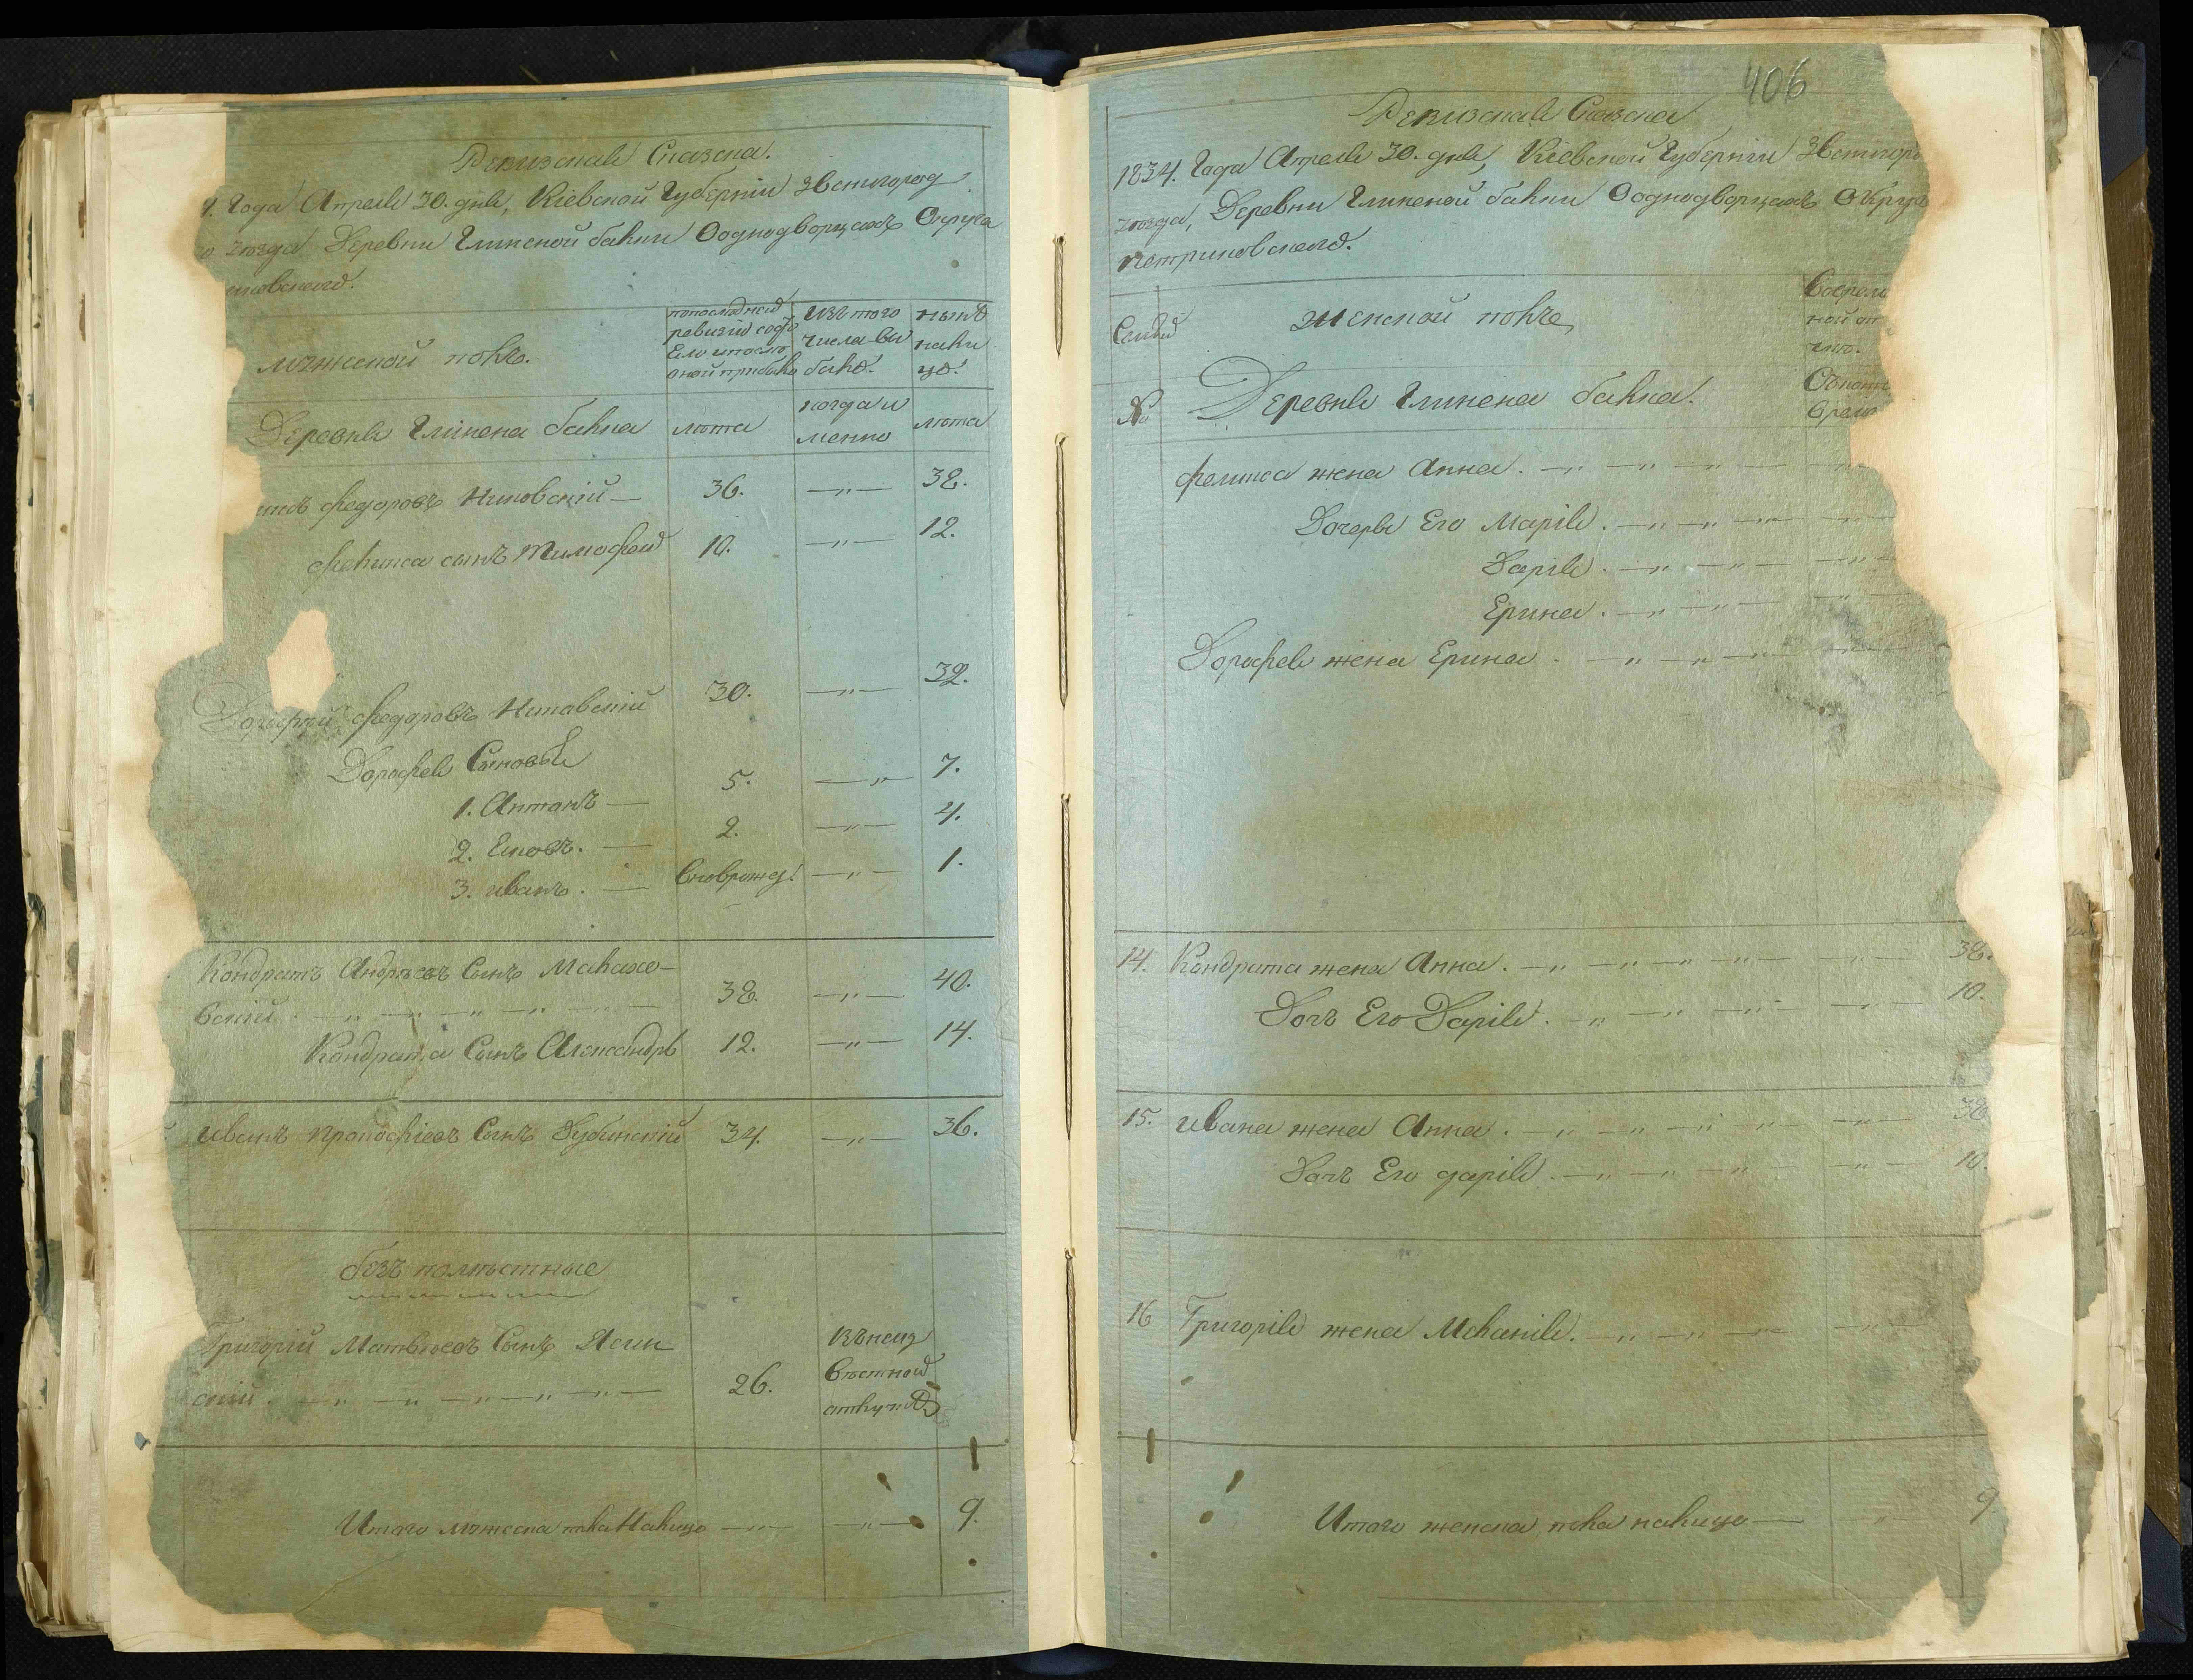 Ревизская Сказка.
4. Года Апреля 30. дня, Кіевской Губерніи Звенигород
о уезда Деревни Глинской балки Ооднодворцахъ Округа
иновскаго.
мужеской полъ.
попоследней
ревизіи состо
Ело ипосле
оной прибыло
Изъ того
числа вы
было.
ныне
нали
цо.
Деревня Глинска балка
лета
когда и
менно
лета
Федоровъ Никовскій — 36. —„— 38.
Феликса сынъ Тимофей 10. —„— 12.
Дорофей Федоровъ Никовскій 30. —„— 32.
Дорофея Сыновья
1. Антонъ — 5. —„— 7.
2. Яковъ. — 2. —„— 4.
3. иванъ. — вновьрожд: —„— 1.
Кондратъ Андреевъ Сынъ Малахо-
вскій. —„—„—„— 38. —„— 40.
Кондрата Сынъ Александръ 12. —„— 14.
иванъ прокофіевъ Сынъ Дубинскій 34. —„— 36.
безъ поместные
Григорій Матвеевъ Сынъ Ясин
скій. —„—„—„— 26.
въ неиз
вестной
отлучке
Итого мужеска пола Налицо —„— —„— 9.
406
Ревизская Сказка
1834. Года Апреля 30. дня, Кіевской Губерніи Звенигоро
уезда, Деревни Глинской балки Ооднодворцахъ Округ
петриковскаго.
Семьи
женской полъ
Вовреме
ной от
№
Деревня Глинска балка.
Феликса жена Анна. —„—„—„—
Дочерь Его Марія. —„—„—
Дарія. —„—„—
Ерина. —„—„—
Дорофея жена Ерина. —„—„—
14. Кондрата жена Анна. —„—„—„— 38.
Дочь Его Дарія. —„—„— 10.
15. ивана жена Анна. —„—„—„— 32
Дочь Его дарія. —„—„— 10.
16 Григорія жена Меланія. „—„—
Итого женска пола налицо — „ 9